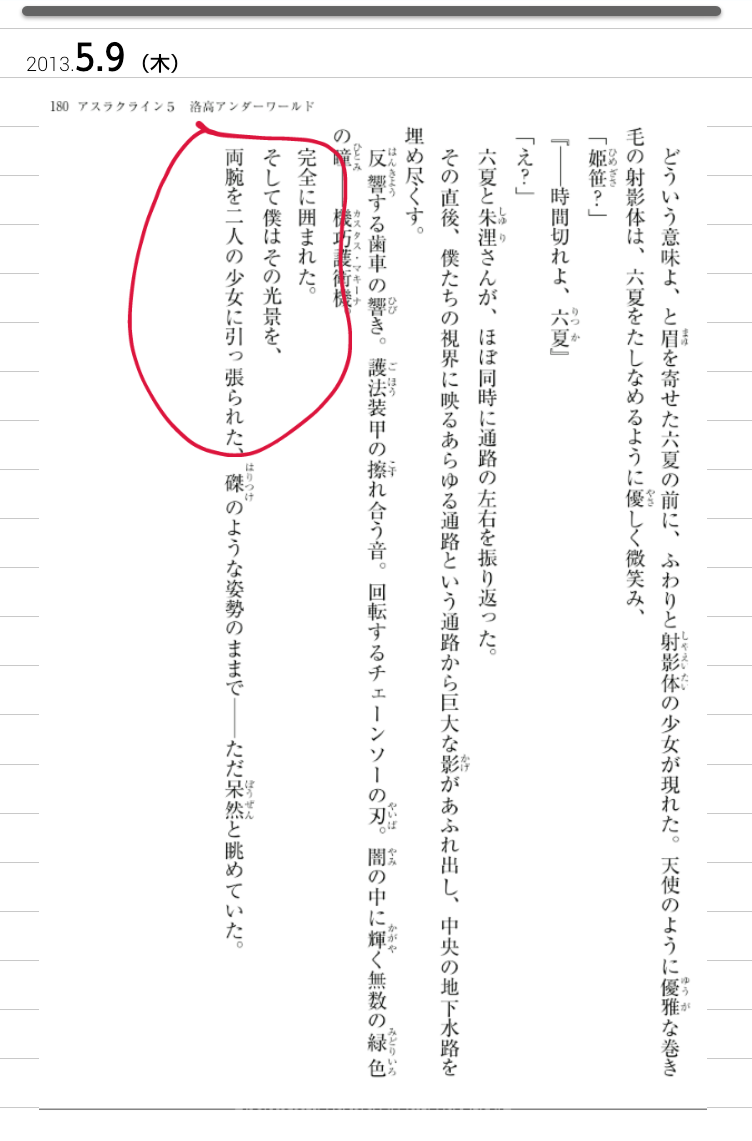 2013.5.9（木）
180 アスラクライン5 洛高アンダーワールド
どういう意味よ、と眉を寄せた六夏の前に、ふわりと射影体の少女が現れた。天使のように優雅な巻き
毛の射影体は、六夏をたしなめるように優しく微笑み、
「姫笹？」
『――時間切れよ、六夏』
「え？」
六夏と朱浬さんが、ほぼ同時に通路の左右を振り返った。
その直後、僕たちの視界に映るあらゆる通路という通路から巨大な影があふれ出し、中央の地下水路を
埋め尽くす。
反響する歯車の響き。護法装甲の擦れ合う音。回転するチェーンソーの刃。闇の中に輝く無数の緑色
の瞳――機巧護衛機。
完全に囲まれた。
そして僕はその光景を、
両腕を二人の少女に引っ張られた、磔のような姿勢のままで――ただ呆然と眺めていた。